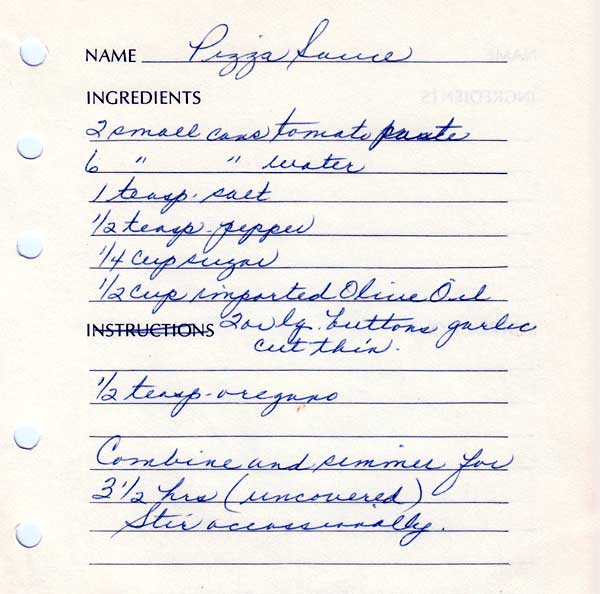 NAME Pizza Sauce
INGREDIENTS
2 small cans tomato paste
6 " " water
1 teasp. salt
1/2 teasp. pepper
1/4 cup sugar
1/2 cup imported Olive Oil
INSTRUCTIONS 2 lg. buttons garlic
cut thin.
1/2 teasp. oregano
Combine and simmer for
3 1/2 hrs (uncovered)
Stir occassionally.